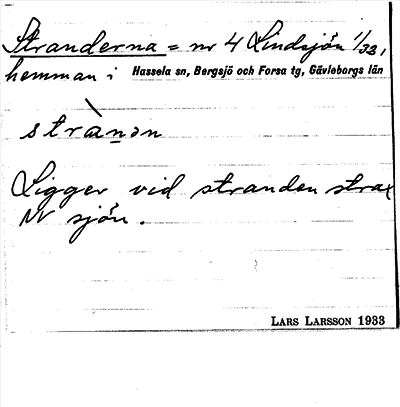 Stranderna = nr 4 Lindsjön 1/33,
hemman i Hassela sn, Bergsjö och Forsa tg, Gävleborgs län
strànən
Ligger vid stranden strax
NV sjön.
LARS LARSSON 1933